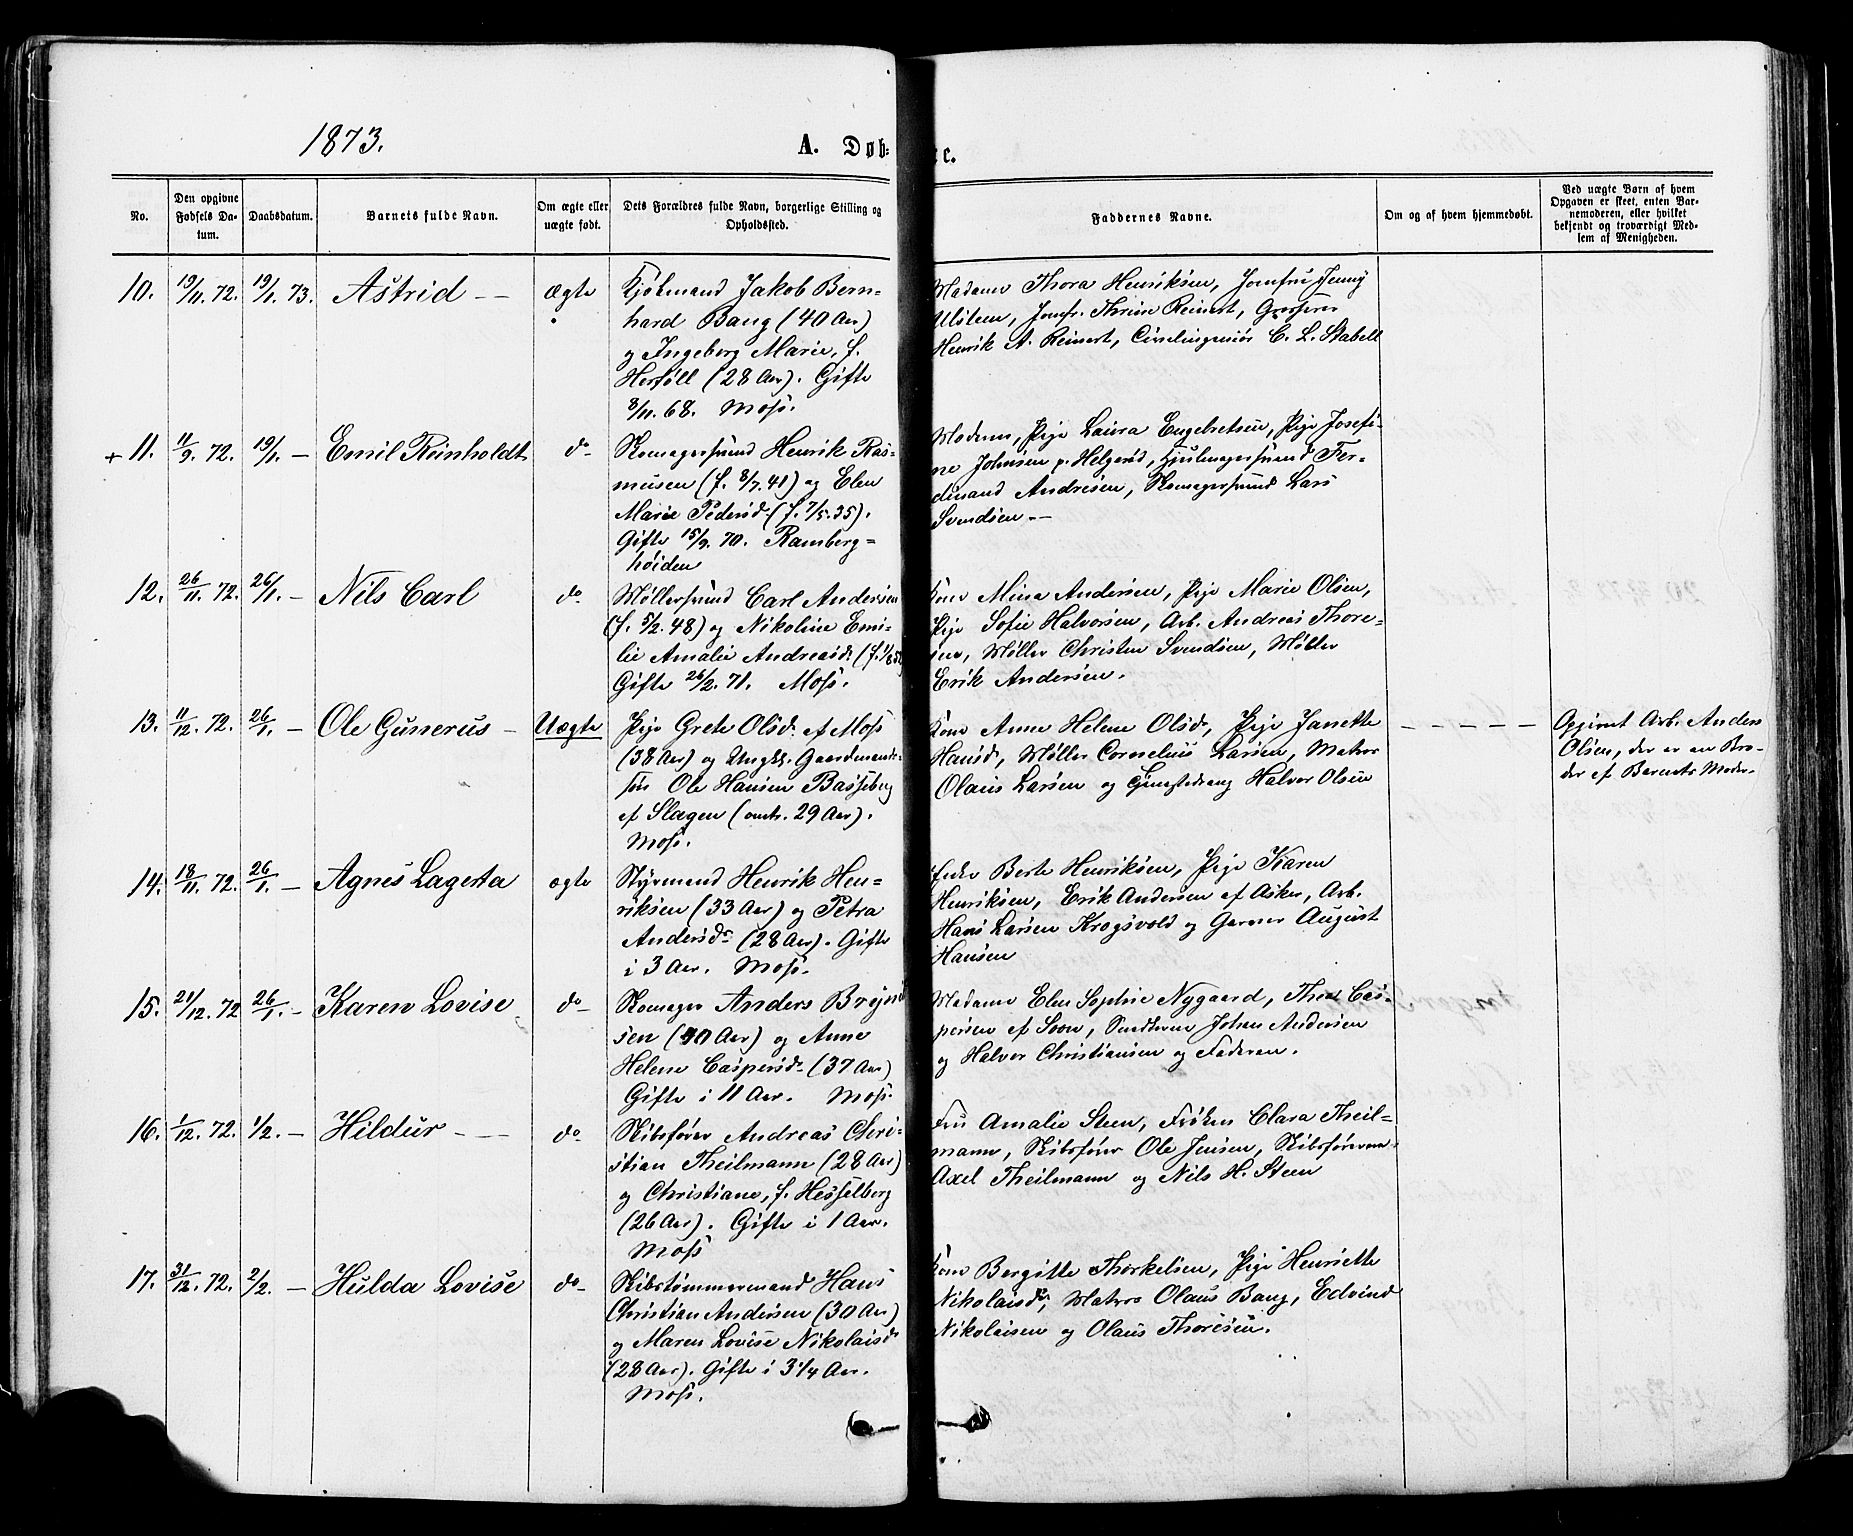 1873.
A. Døb-
te.
No.
Den opgivne Fødsels Da-tum.
Daabsdatum.
Barnets fulde Navn.
Om ægte eller uægte født.
Dets Forældres fulde Navn, borgerlige Stilling og Opholdssted.
Faddernes Navne.
Om og af hvem hjemmedøbt.
Ved uægte Børn af hvem Opgaven er skeet, enten Bar-nemoderen, eller hvilket bekjendt og troværdigt Med-lem af Menigheden.
10. 19/11. 72. 19/1. 73. Astrid — Ægte
Kjøbmand Jakob Bern-
hard Bang (40 Aar)
og Ingeborg Marie, f.
Herføll (28 Aar). Gifte
8/11. 68. Moss.
Madame Thora Henriksen, Jomfru Jenny
Ulsteen, Jomfr. Thrine Reinert, Grosserer
Henrik A. Reinert, Civilingeniør C. L. Stabell
+ 11. 11/9. 72. 19/1. — Emil Reinholdt do
Skomagersvend Henrik Ras-
musen (f. 8/7. 41) og Elen
Marie Pedersd. (f. 7/5. 35).
Gifte 15/9. 70. Ramberg-
høiden
Moderen, Pige Laura Engebretsen, Pige Josefi-
ne Johnsen p. Helgerød, Hjulmagersvend Fer-
dinand Andresen, Skomagersvend Lars
Svendsen. —
12. 26/11. 72. 26/1. — Nils Carl do
Møllersvend Carl Andersen
(f. 5/2. 48) og Nikoline Emi-
lie Amalie Andreasd.
Gifte 26/2. 71. Moss.
Kone Mina Andersen, Pige Marie Olsen,
Pige Sofie Halvorsen, Arb. Andreas Thore-
sen, Møller Christen Svendsen, Møller
Erik Andersen.
13. 11/12. 72. 26/1. — Ole Gunerus — Uægte
Pige Grete Olsd. af Moss
(38 Aar) og Ungk. Gaardmands-
søn Ole Hansen Basseberg
af Slagen (omtr. 29 Aar).
Moss.
Kone Anne Helene Olsd., Pige Janette
Hansd., Møller Cornelius Larsen, Matros
Olaus Larsen og Tjenestedreng Halvor Olsen
— — — — —
Opgivet Arb. Anders
Olsen, der er en Bro-
der af Barnets Moder.
14. 18/11. 72. 26/1. — Agnes Lagerta ægte
Styrmand Henrik Hen-
riksen (33 Aar) og Petra
Andersd. (28 Aar). Gifte
i 3 Aar. Moss.
Enke Berte Henriksen, Pige Karen
Henriksen, Erik Andersen af Asker, Arb.
Hans Larsen Krogsvold og Garver August
Hansen
15. 21/12. 72 26/1. — Karen Lovise do
Skomager Anders Brynd
sen (40 Aar) og Anne
Helene Caspersd. (37 Aar)
Gifte i 11 Aar. Moss.
Madame Elen Sophie Nygaard, Thea Cas-
persen af Soon, Smedsvend Johan Andersen
og Halvor Christiansen og Faderen.
16. 1/12. 72. 1/2. — Hildur — — do
Skibsfører Andreas Chri-
stian Theilmann (28 Aar)
og Christiane, f. Hesselberg
(26 Aar). Gifte i 1 Aar.
Moss
Fru Amalie Steen, Frøken Clara Theil-
mann, Skibsfører Ole Jensen, Skibsførerne
Axel Theilmann og Nils H. Steen
17. 31/12. 72. 2/2. — Hulda Lovise do
Skibstømmermand Hans
Christian Andersen (30 Aar)
og Maren Lovise Nikolaisd.
(28 Aar). Gifte i 3 1/4 Aar.
Moss.
Kone Bergitte Thorkelsen, Pige Henriette
Nikolaisd., Matros Olaus Bang, Edvind
Nikolaisen og Olaus Thoresen.